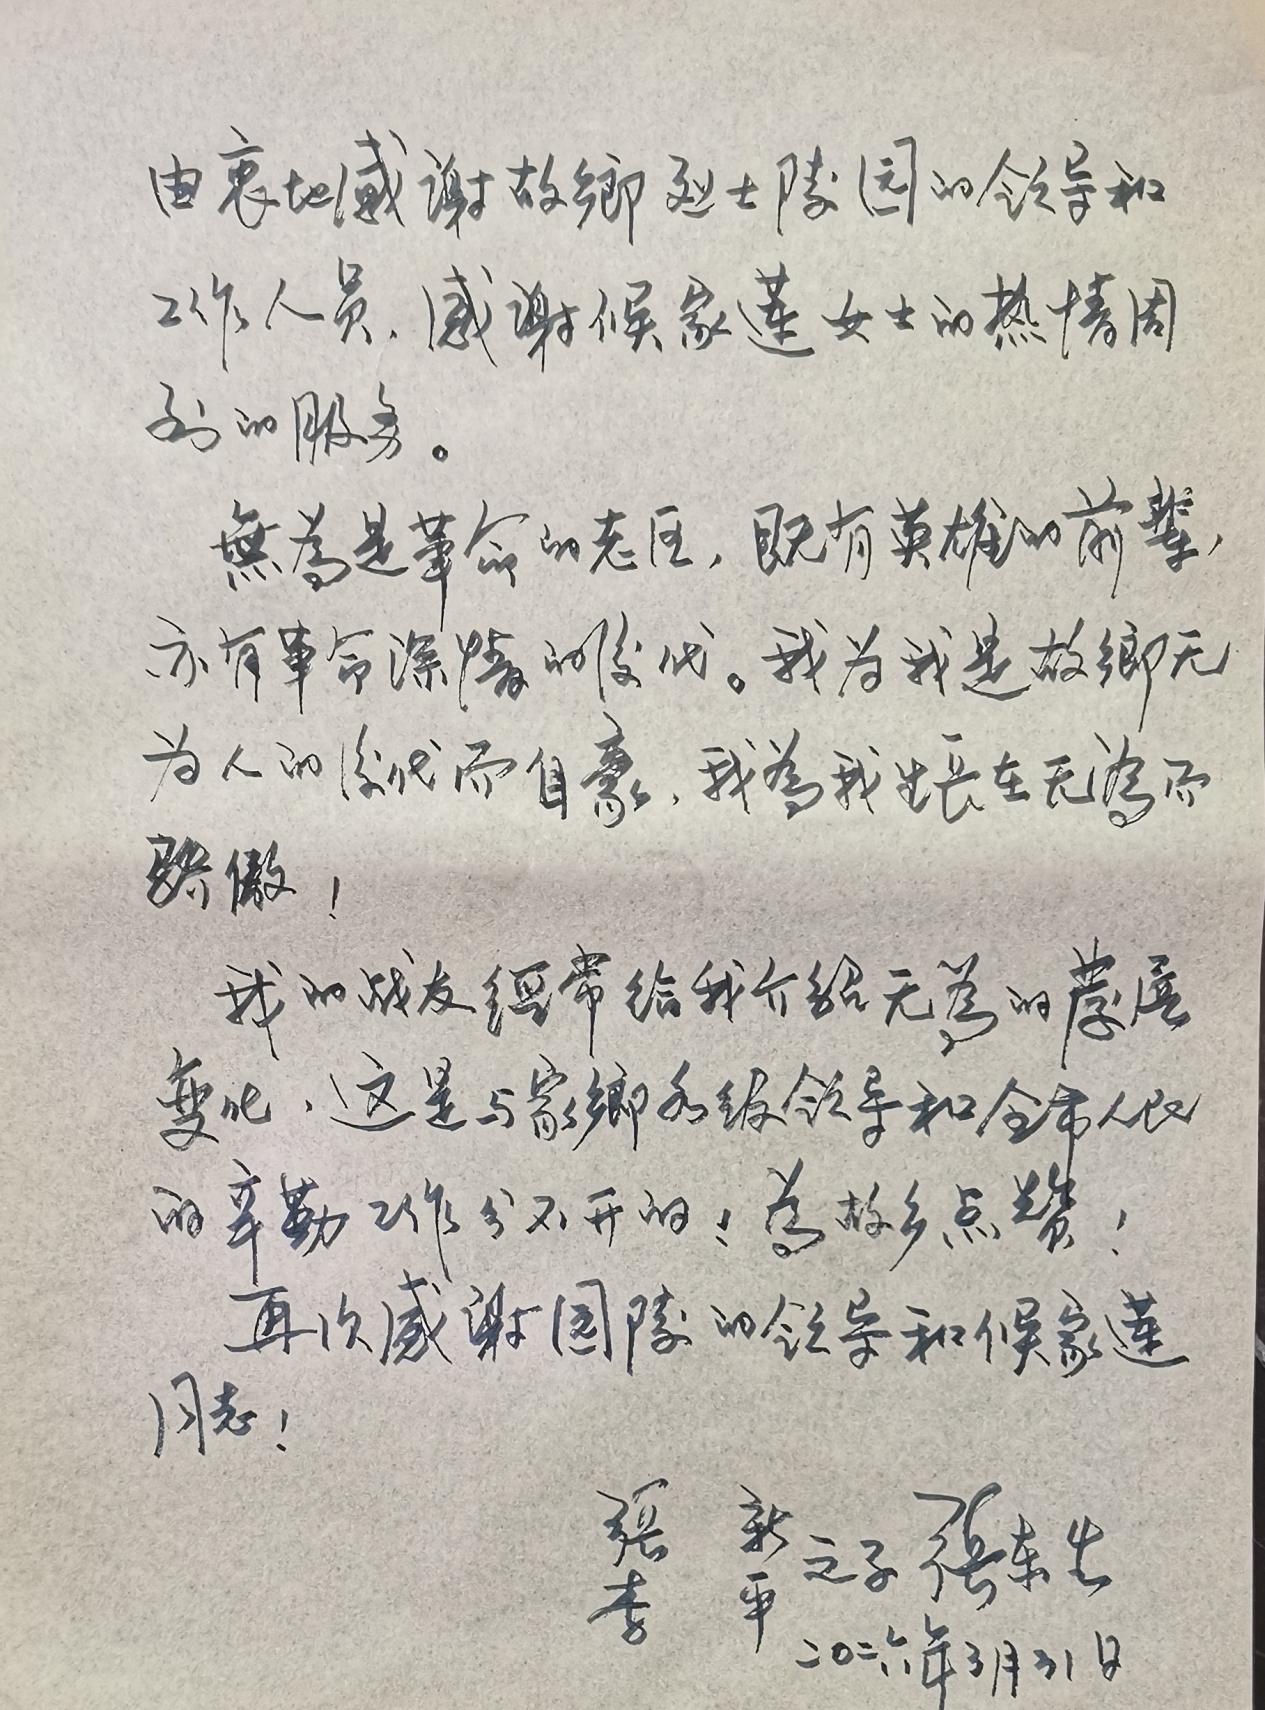 由衷地感謝故鄉烈士陵园的领导和
工作人员，感謝候家蓮女士的热情周
到的服务。
無為是革命的老区，既有英雄的前輩，
亦有革命深情的後代。我为我是故鄉无
为人的後代而自豪，我為我生長在无為而
骄傲！
我的战友經常给我介绍无為的發展
變化，这是与家鄉各级领导和全市人民
的辛勤工作分不开的！為故乡点赞！
再次感謝园陵的领导和候家蓮
同志！
張 新
李 平 之子 張东生
二〇二六年3月31日